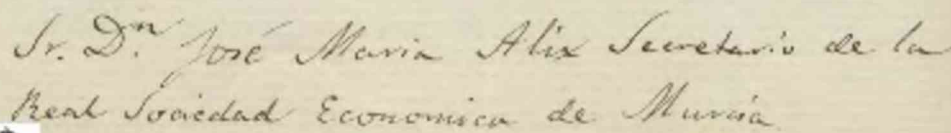 Sr. Dn. José Maria Alix Secretario de la
Real Sociedad Economica de Murcia